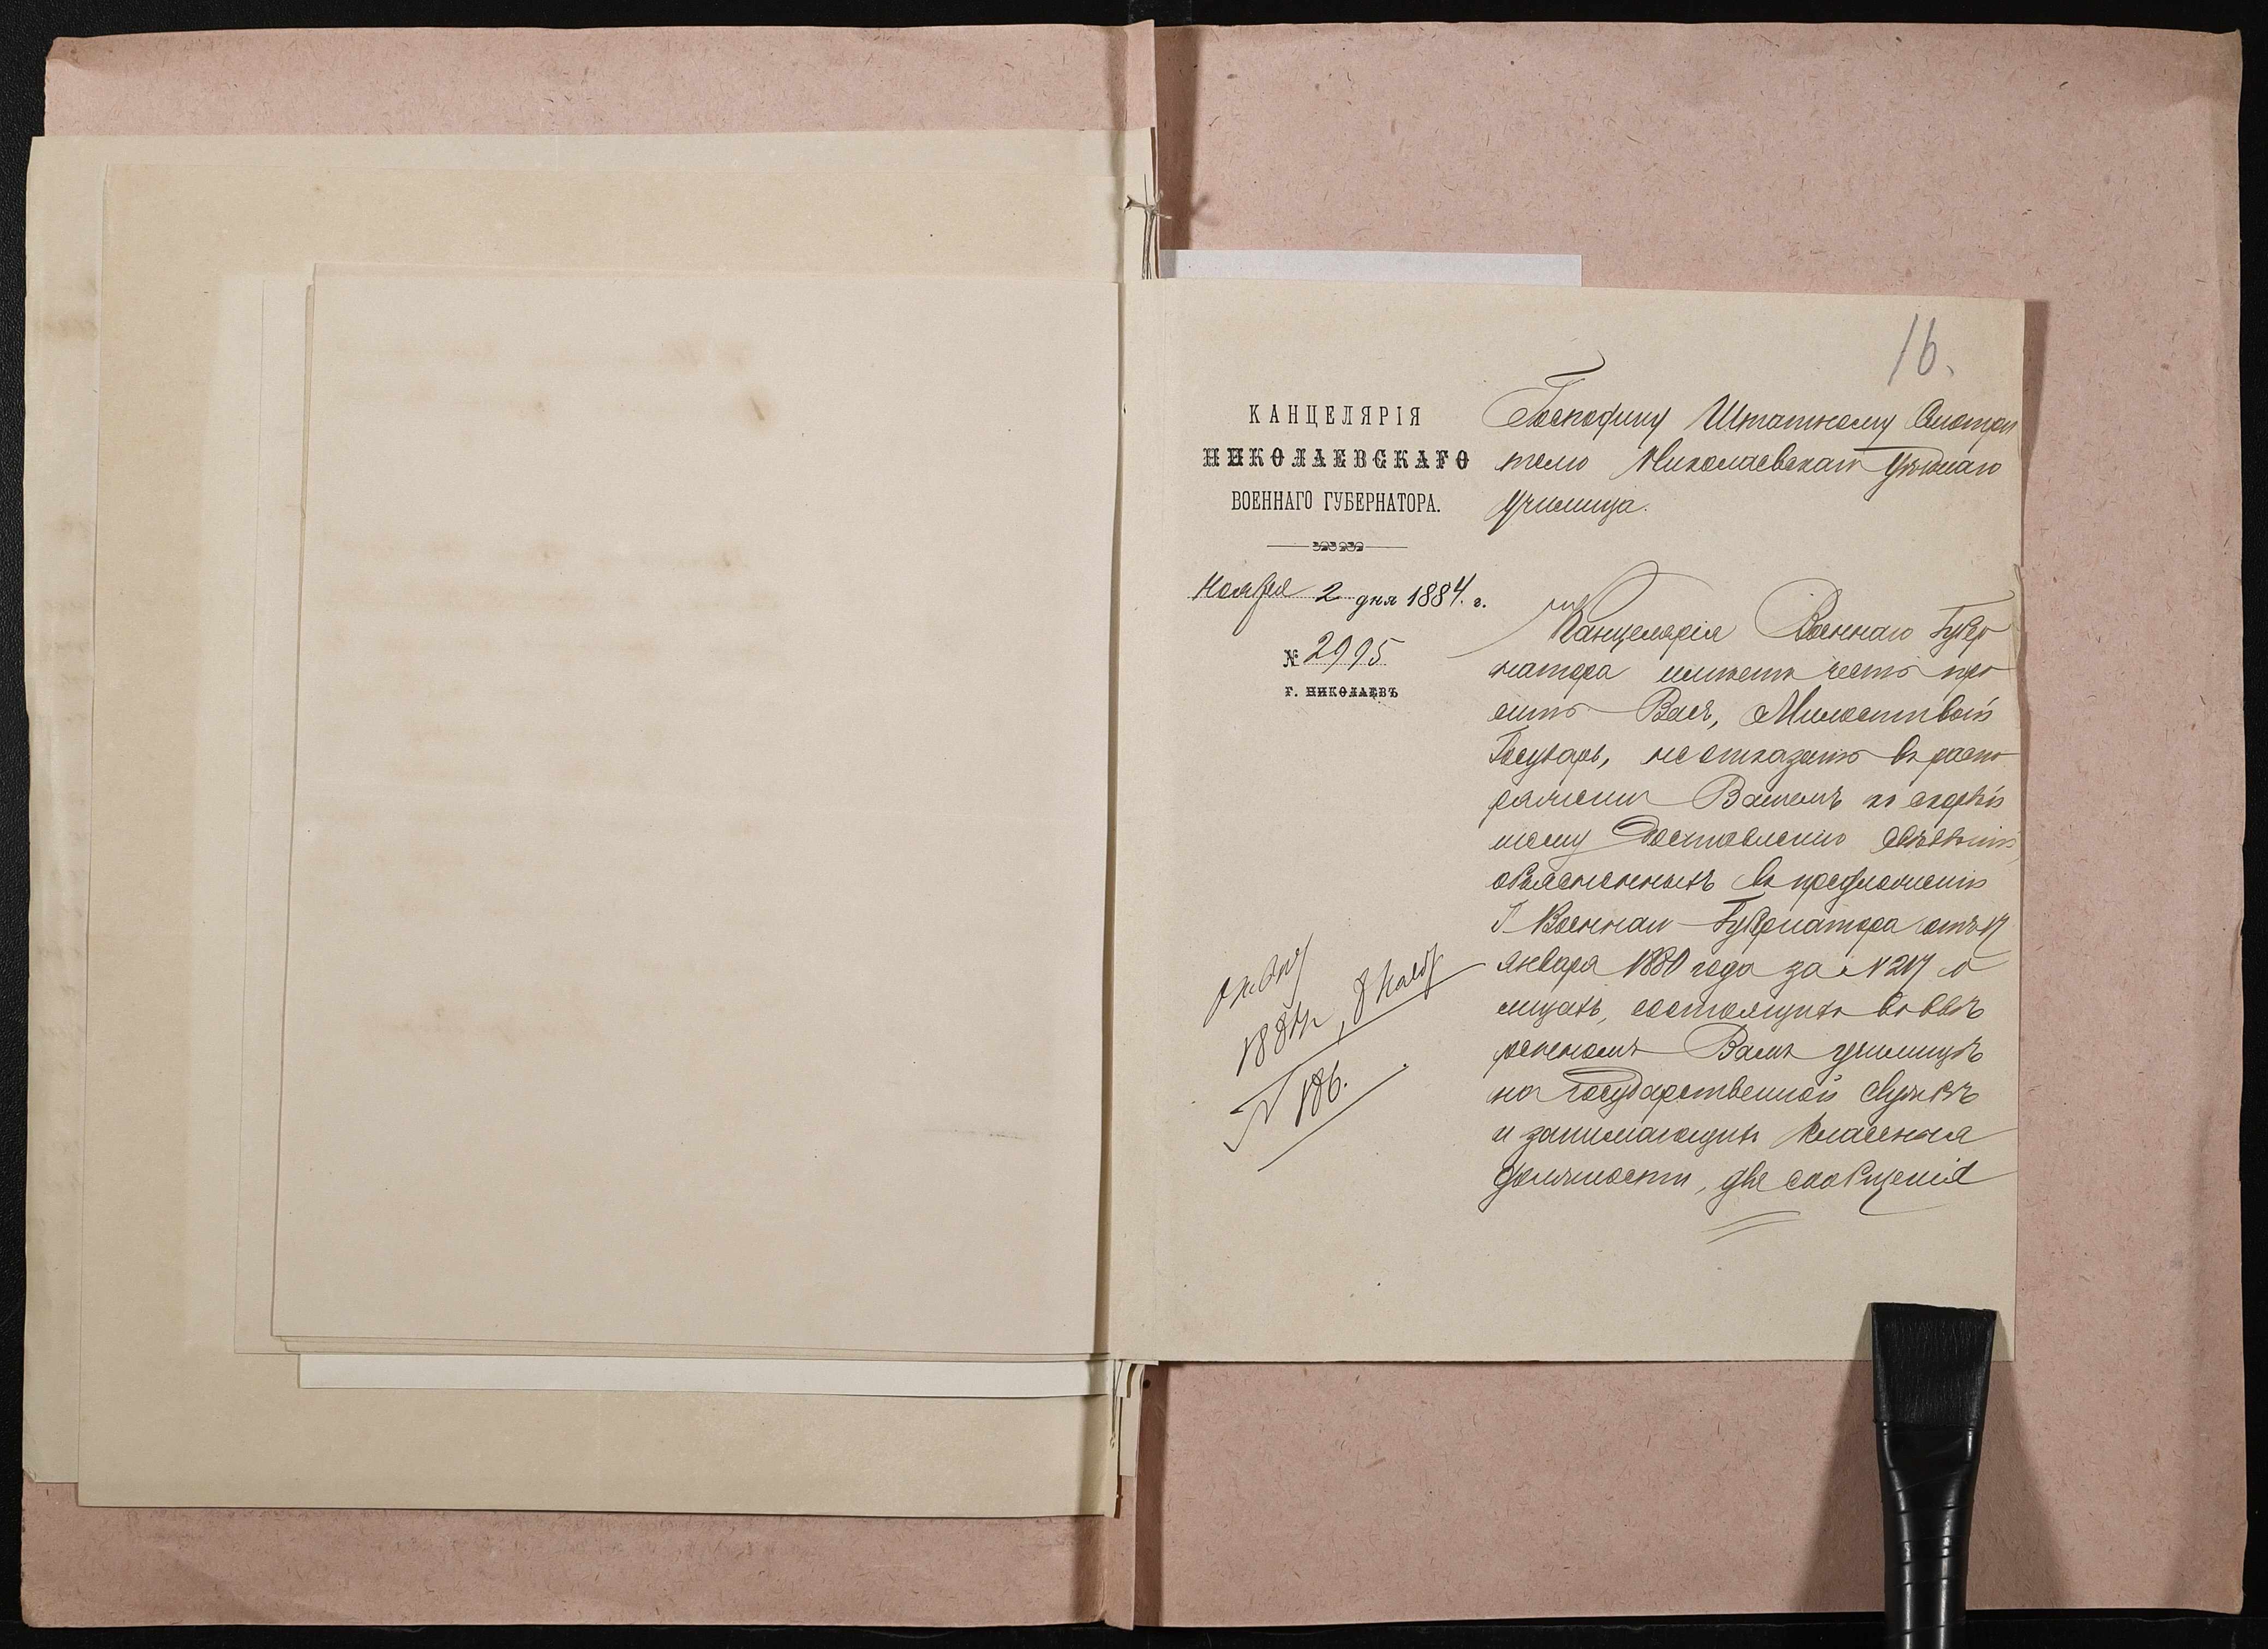 16.
КАНЦЕЛЯРІЯ
НИКОЛАЕВСКАГО
ВОЕННАГО ГУБЕРНАТОРА.
Ноября 2 дня 1884. г.
№ 2995
Г. НИКОЛАЕВЪ
Господину Штатному Смотри
телю Николаевскаго Уѣзднаго
Училища.
Канцелярія Военнаго Губер
натора имѣетъ честь про
сить Васъ, Милостивый
Государь, не отказать въ распо
ряженіи Вашемъ къ скорѣй
шему доставленію свѣдѣній,
объясненныхъ въ предложеніи
Г. Военнаго Губернатора отъ 17
января 1880 года за № 217 о
лицахъ, состоящихъ во ввѣ
ренномъ Вамъ училищѣ
на Государственной службѣ
и занимающихъ классныя
должности, для сообщенія
1884 г., 8 Нояб
№ 186.